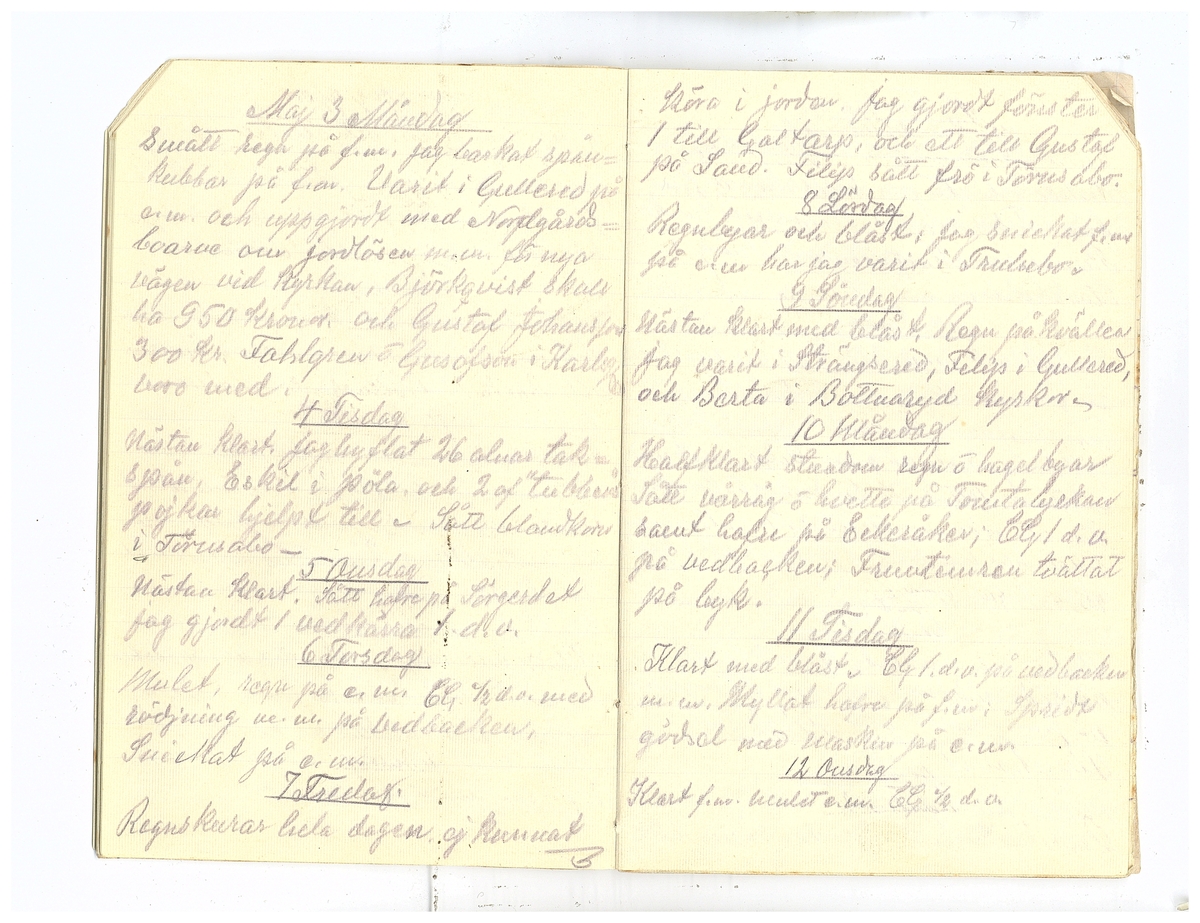 Maj 3 Måndag
Smått regn på f.m. jag barkat spån=
kubbar på f.m. Varit i Gullered på
e.m. och uppgjordt med Nordgårds=
boarne om jordlösen m.m. för nya
vägen vid Kyrkan, Björkqvist skall
ha 950 Kronor. och Gustaf Johansson
300 kr. Fahlgren o Gustafson i
voro med.
4 Tisdag
Nästan klart. Jag hyflat 26 alnar tak=
spån, Eskil i Pöla. och 2 af
pojkar hjelpt till – Sått blandkorn
i Törnsabo –
5 Onsdag
Nästan klart. Sått hafre på Sörgerdet
jag gjordt 1 vedkärra 1. d. v.
6 Torsdag
Mulet, regn på e.m. CG. 1/2 d.v. med
rödjning m.m. på vedbacken,
Snickat på e.m.
7 Fredag.
Regnskurar hela dagen. ej kunnat
köra i jorden. Jag gjordt fönster
1 till Galtarp, och ett till Gustaf
på Sand. Filips sått frö i Törnsabo.
8 Lördag
Regnbyar och blåst; jag snickat f.m
på e.m har jag varit i Trulsebo.
9 Söndag
Nästan klart med blåst. Regn på kvällen
jag varit i Strängsered, Filips i Gullered,
och Berta i Bottnaryd kyrkor.
10 Måndag
Halfklart stundom regn o hagelbyar
Sått vårråg o hvette på Tomtalyckan
samt hafre på CG 1 d. v.
på vedbacken; Fruntimren tvättat
på byk.
11 Tisdag
Klart med blåst. CG 1. d. v. på vedbacken
m.m. Myllat hafre på f.m; Spridt
gödsel med maskin på e.m.
12 Onsdag
Klart f.m. mulit e.m. CG 1/2 d. v.